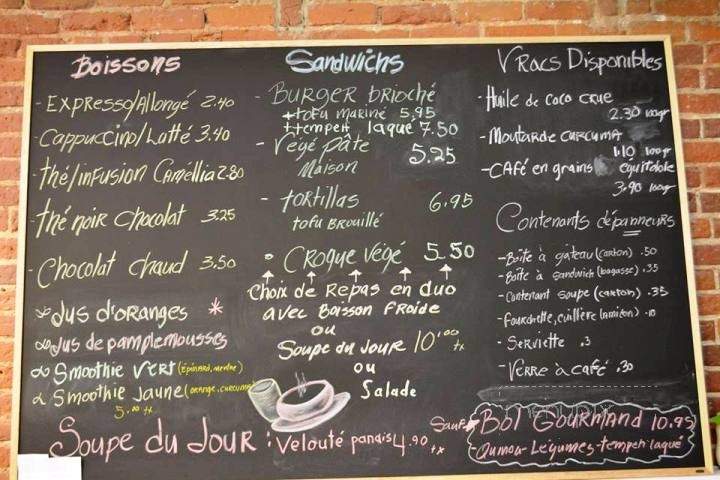 Boissons
- Expresso/Allongé 2.40
- Cappuccino/Latté 3.40
- Thé/infusion Camellia 2.80
Thé noir chocolat 3.25
- Chocolat chaud 3.50
Jus d'oranges *
Jus de pamplemousses
Smoothie vert (épinard, menthe)
Smoothie jaune (orange, curcuma)
5.00 tx
Sandwichs
- Burger brioché
+ tofu mariné 5.95
+ tempeh laqué 7.50
- Végé pâté 5.25
Maison
- tortillas 6.95
tofu Brouillé
Croque végé 5.50
Choix de Repas en duo
avec Boisson froide
ou
Soupe du Jour 10.00 tx
ou
Salade
Vracs Disponibles
- Huile de coco crue
2.30 100gr
- Moutarde curcuma
1.10 100gr
- Café en grains équitable
3.90 100gr
Contenants dépanneurs
- Boîte à gâteau (carton) .50
- Boîte à sandwich (bagasse) .35
- Contenant soupe (carton) .35
- Fourchette, cuillère (amidon) .10
- Serviette .3
- Verre à café .30
Soupe du Jour : Velouté panais 4.90 tx
Sauf
Bol Gourmand 10.95
- Quinoa - Légumes - tempeh laqué